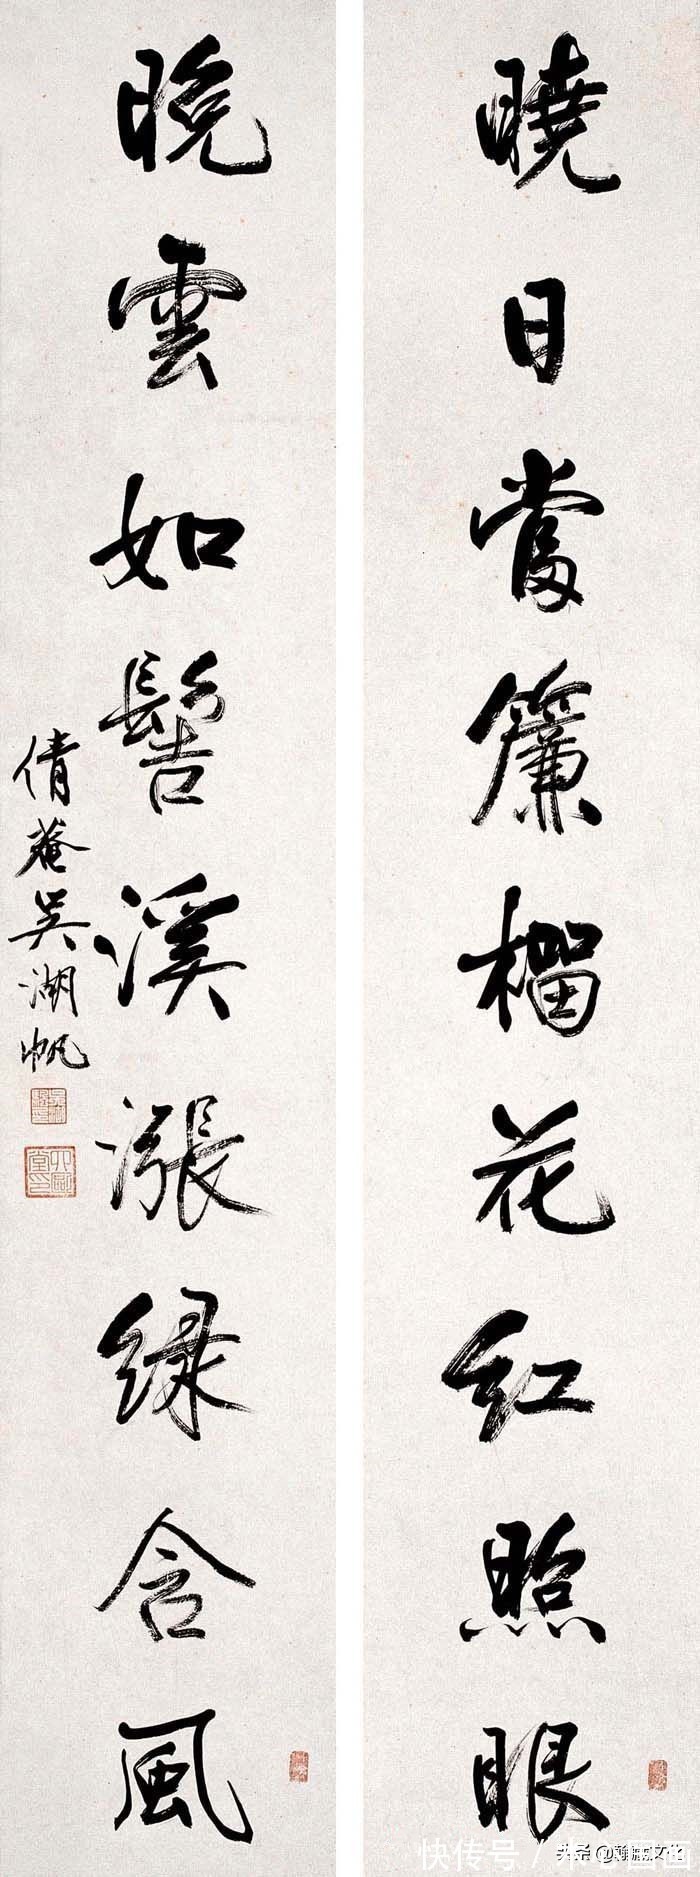 曉日當簾榴花紅照眼
晚雲如髻溪漲綠含風
倩菴吳湖帆
快传号 /
头条